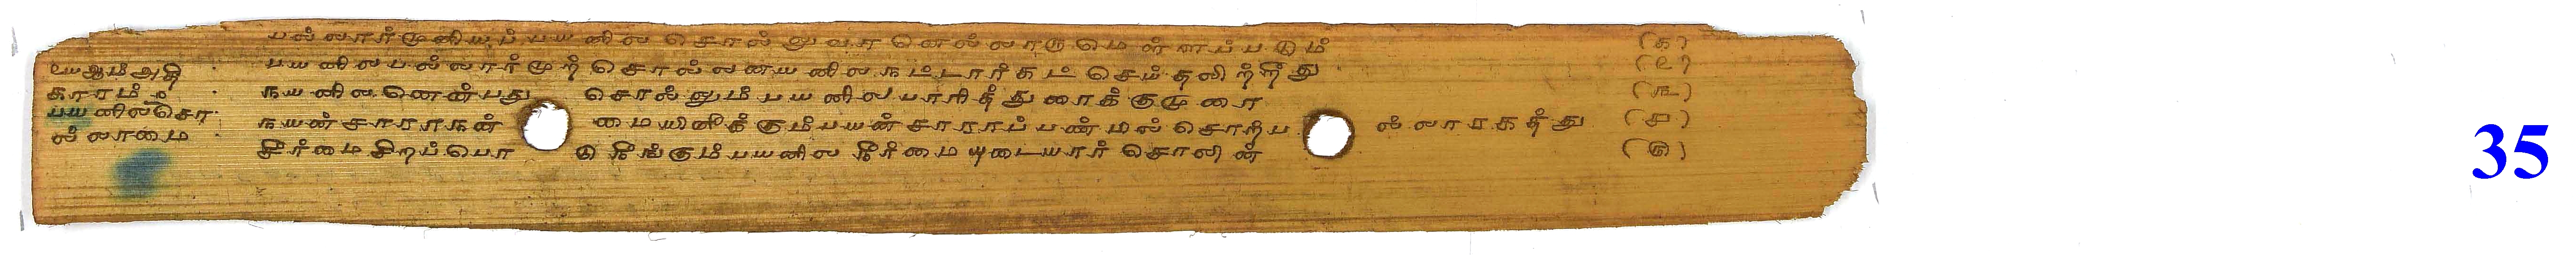 பல்லார்முனியப் பயனில சொல்லுவானெல்லாருமெள்ளப்படும் (க)
௨ய ஆம் அதி பயனிலபல்லார்முற் சொல்லனயனிலநட்டார்கட் செய்தலிற்றீது (௨)
காரம் நயனிலனென்பது சொல்லும் பயனில பாரித்துரைக்குமுரை (௩)
பயனில்சொ நயன்சாராநன் மையினீக்கும்பயன்சாராப்பண்பில்சொற்ப ல்லாரகத்து (௪)
ல்லாமை சீர்மைசிறப்பொ டு நீங்கும்பயனில நீர்மையுடையார் சொலின் (௫)
35